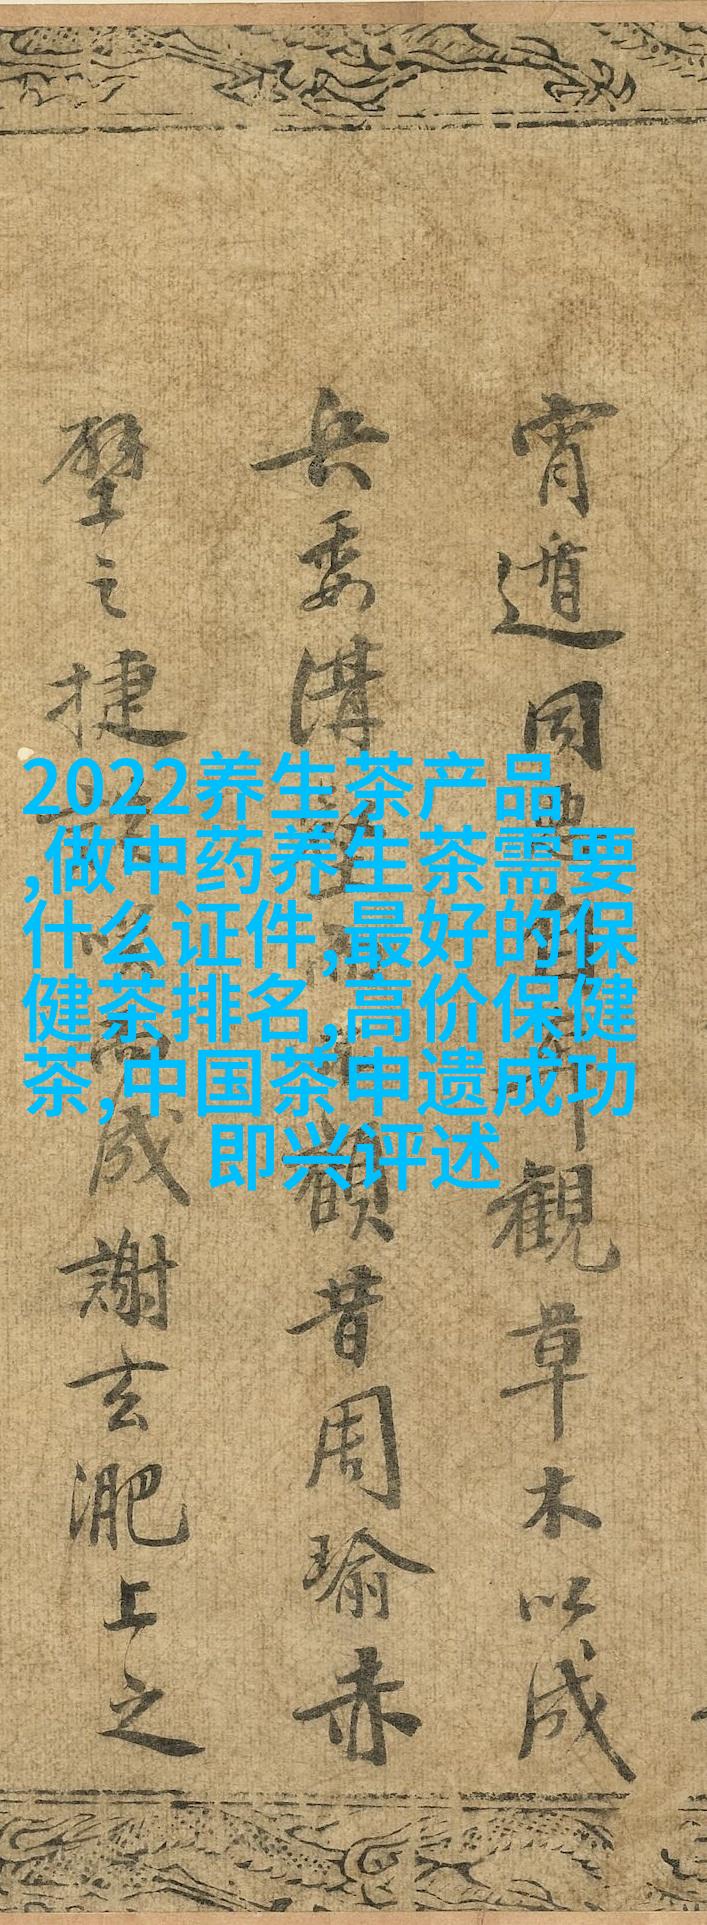 2022养生茶产品
,做中药养生茶需要
什么证件,最好的保
健茶排名,高价保健
茶,中国茶申遗成功
即兴评述
宵遁觀草木以成
兵委溝壑而不顧昔周瑜赤
壁之捷談笑而成謝玄淝上之